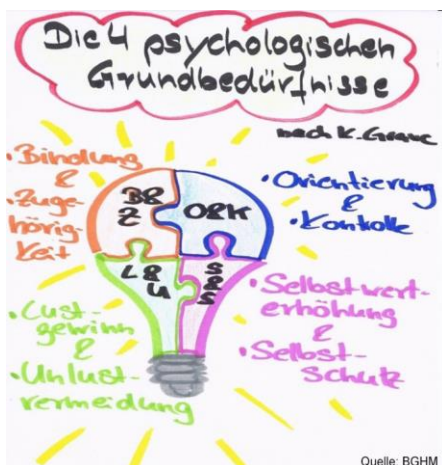 Die 4 psychologischen
Grundbedürfnisse
nach K. Grawe
• Bindung
&
• Zuge-
hörig-
keit
B&
Z
O&K
• Orientierung
&
• Kontrolle
L&
U
S&S
• Lust-
gewinn
&
• Unlust-
vermeidung
• Selbstwert-
erhöhung
&
• Selbst-
schutz
Quelle: BGHM